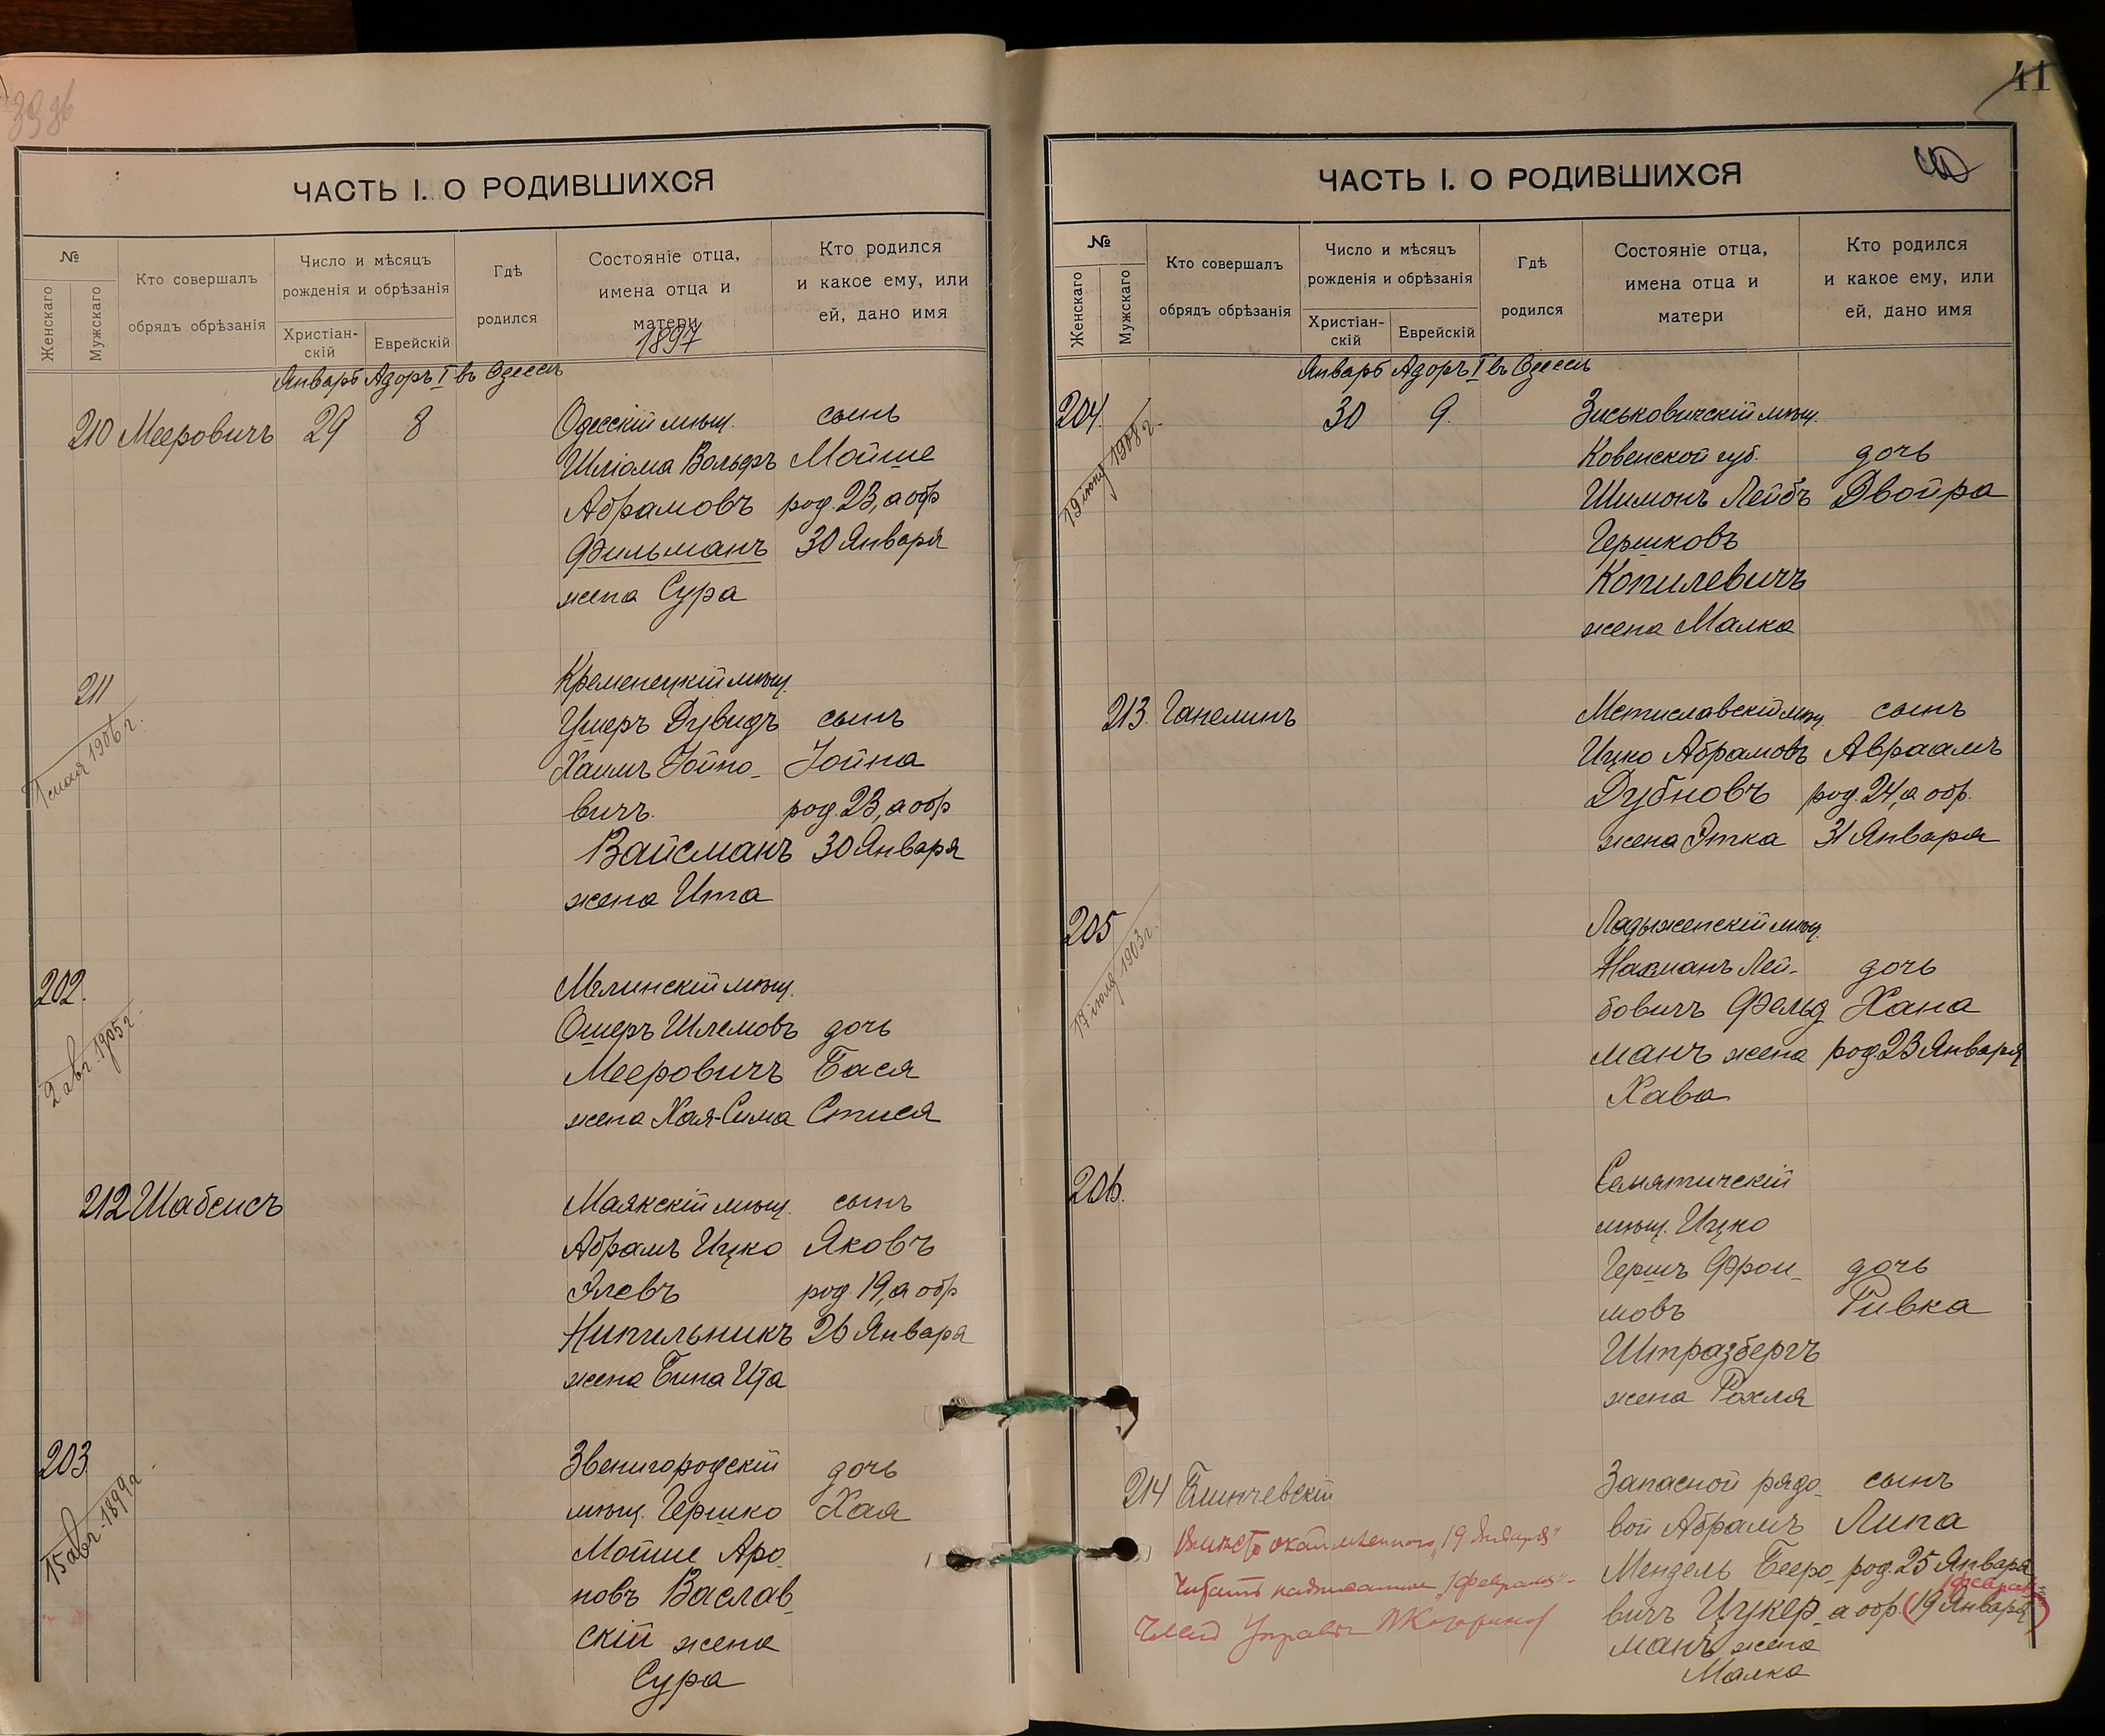 ЧАСТЬ I. О РОДИВШИХСЯ
№
Женскаго
Мужскаго
Кто совершалъ
обрядъ обрѣзанія
Число и мѣсяцъ
рожденія и обрѣзанія
Христіан-
скій
Еврейскій
Гдѣ
родился
Состояніе отца,
имена отца и
матери
Кто родился
и какое ему, или
ей, дано имя
1897
Январь Адоръ I въ Одессѣ
210 Мееровичъ 29 8 Одесскій мѣщ. сынъ
Шліома Вольфъ Мойше
Абрамовъ род. 23, а обр
Фильманъ 30 Января
жена Сура
211 Кременецкій мѣщ.
1 мая 1906 г.
Ушеръ Дувидъ сынъ
Хаимъ Іойно- Іойна
вичъ. род. 23, а обр
Вайсманъ 30 Января
жена Ита
202.
2 авг. 1905 г.
мѣщ.
Ошеръ Шлемовъ дочь
Мееровичъ Бася
жена Хая-Сима
212 Шабсисъ Маякскій мѣщ. сынъ
Абрамъ Ицко Яковъ
Элевъ род. 19, а обр
26 Января
жена Бина Ита
203. Звенигородскій дочь
15 авг. 1899 г.
мѣщ. Гершко Хая
Мойше Аро-
новъ Васлав-
скій жена
Сура
41
40
ЧАСТЬ I. О РОДИВШИХСЯ
№
Женскаго
Мужскаго
Кто совершалъ
обрядъ обрѣзанія
Число и мѣсяцъ
рожденія и обрѣзанія
Христіан-
скій
Еврейскій
Гдѣ
родился
Состояніе отца,
имена отца и
матери
Кто родился
и какое ему, или
ей, дано имя
Январь Адоръ I въ Одессѣ
204. 30 9. мѣщ.
19 іюня 1908 г.
Ковенской губ. дочь
Шимонъ Лейбъ Двойра
Гершковъ
Копилевичъ
жена Малка
213. Ганелинъ Мстиславскій мѣщ. сынъ
Ицко Абрамовъ Авраамъ
Дубновъ род. 24, а обр.
жена Этка 31 Января
205 Ладыженскій мѣщ.
17 іюля 1903 г.
Нахманъ Лей- дочь
бовичъ Фельд Хана
манъ жена род 23 Января
Хава
206. Семятичскій
мѣщ. Ицко
Гершъ Фрои- дочь
мовъ Ривка
Штразбергъ
жена Рохля
214 Запасной рядо- сынъ
вой Абрамъ Липа
Мендель Бееро- род. 25 Января
1 февраля
вичъ Цукер- а обр. (19 Января)
манъ жена
Малка
Вмѣсто окаймленнаго „19 Января"
читать надписанное „1 февраля" -
Членъ Управы